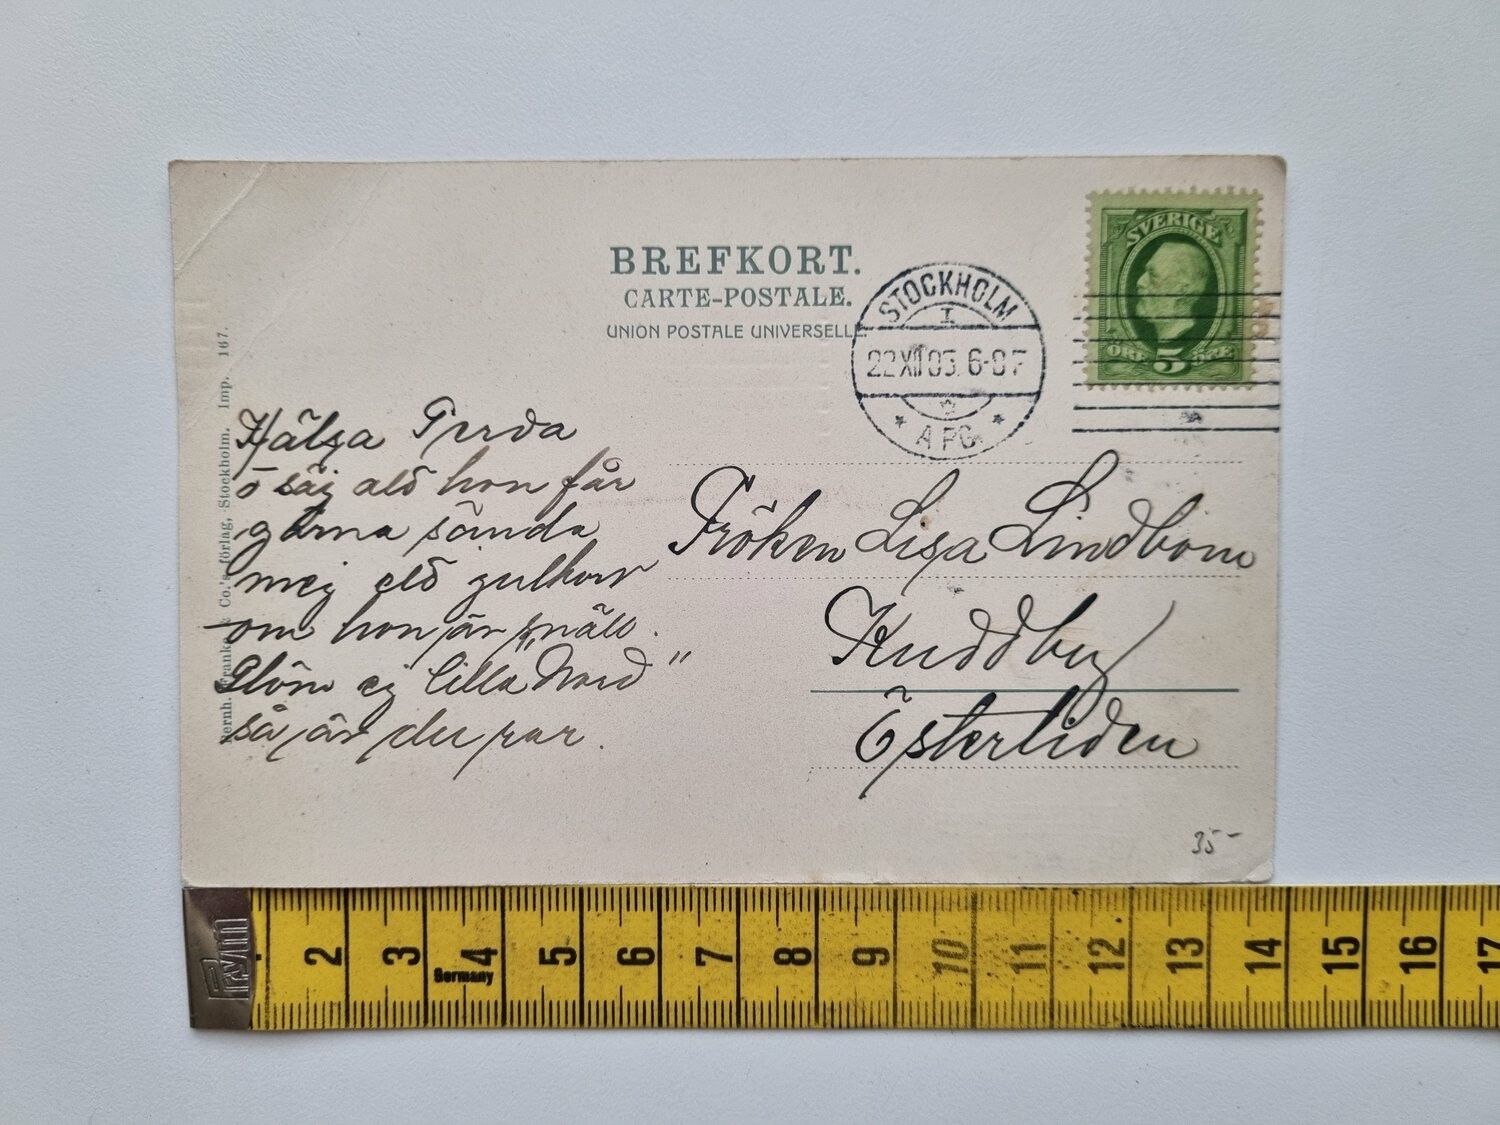 BREFKORT.
CARTE-POSTALE.
UNION POSTALE UNIVERSELLE.
SVERIGE
ÖRE 5 ÖRE
STOCKHOLM
I
22 XII 03. 6-07
AFG.
Co.'s förlag, Stockholm. Imp. 167.
Hälsa Gerda
o säg att hon får
gärna sända
mej ett julkort
om hon är snäll.
Glöm ej lilla "Nord"
så är du rar.
Fröken Lisa Lindbom
Kuddby
Östertiden
35-
Prym
2 3 4 5 6 7 8 9 10 11 12 13 14 15 16 17
Germany